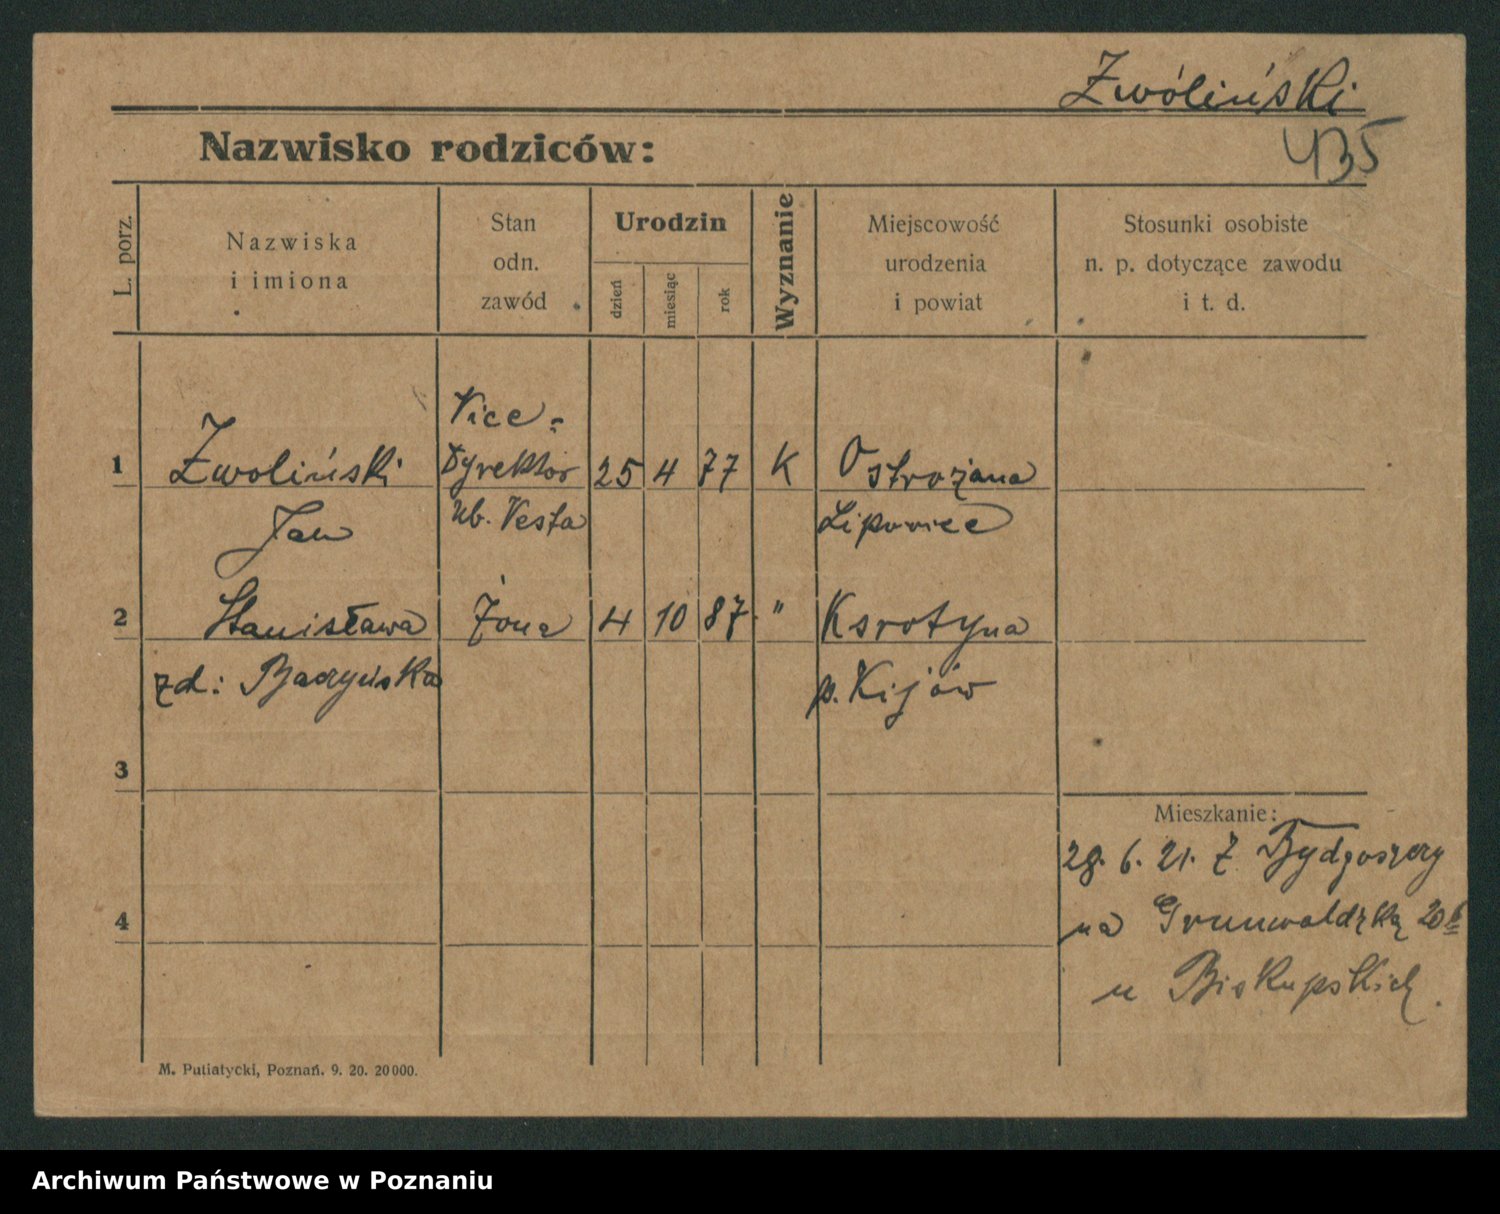 Zwóliński
Nazwisko rodziców:
435
L. porz.
Nazwiska
i imiona
Stan
odn.
zawód
Urodzin
dzień
miesiąc
rok
Wyznanie
Miejscowość
urodzenia
i powiat
Stosunki osobiste
n. p. dotyczące zawodu
i t. d.
Vice-
1 Zwoliński Dyrektor 25 4 77 K Ostrożana
Jan Ub. Vesta Lipowiec
2 Stanisława Żona 4 10 87 " Ksrotyna
zd: Baczyńska p. Kijów
3
Mieszkanie:
28. 6. 21. Z Bydgoszczy
4 na Grunwaldzką 20
u Biskupskich.
M. Putiatycki, Poznań. 9. 20. 20000.
Archiwum Państwowe w Poznaniu